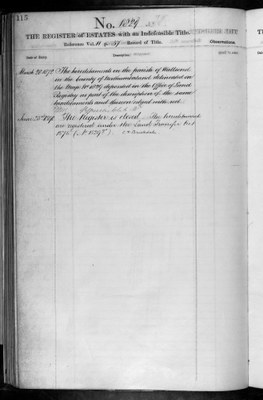 115
No. 1029
THE REGISTER of ESTATES with an Indefeasible Title.
Reference Vol. 11 p. 257 Record of Title.
Date of Entry.
Description
Observations
March 20 1872 The hereditaments in the parish of Wallsend
in the County of Northumberland delineated on
the Map No 1029 deposited in the Office of Land
Registry as part of the description of the same
hereditaments and thereon edged with red
The Register is closed. The hereditaments
are registered under the Land Transfer Act
1875 (No 1029)